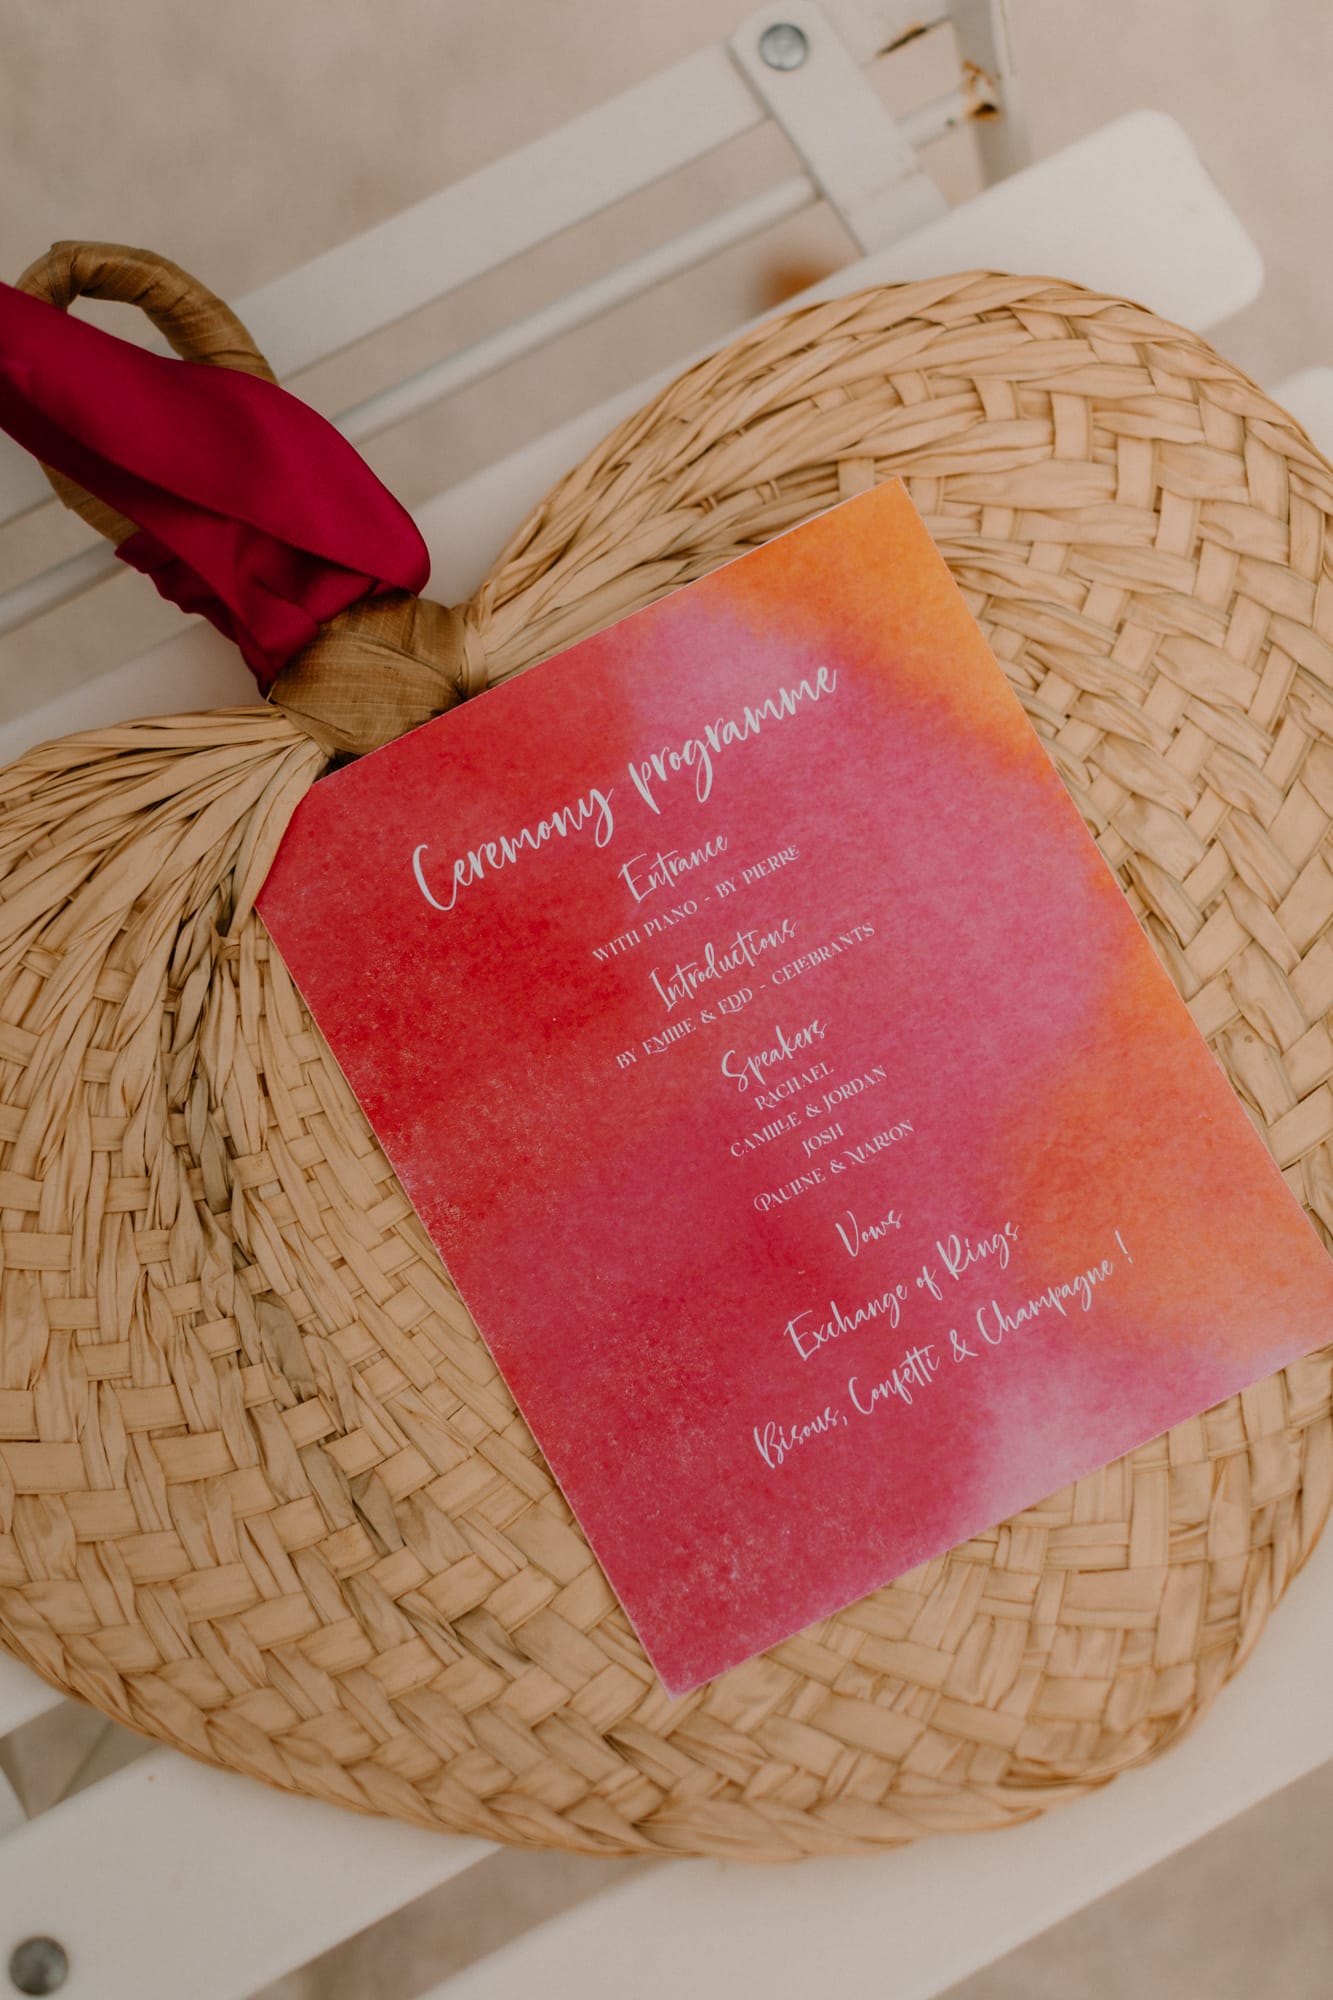 Ceremony programme
Entrance
WITH PIANO - BY PIERRE
Introductions
BY EMILIE & EDD - CELEBRANTS
Speakers
RACHAEL
CAMILLE & JORDAN
JOSH
PAULINE & MARION
Vows
Exchange of Rings
Bisous, Confetti & Champagne !